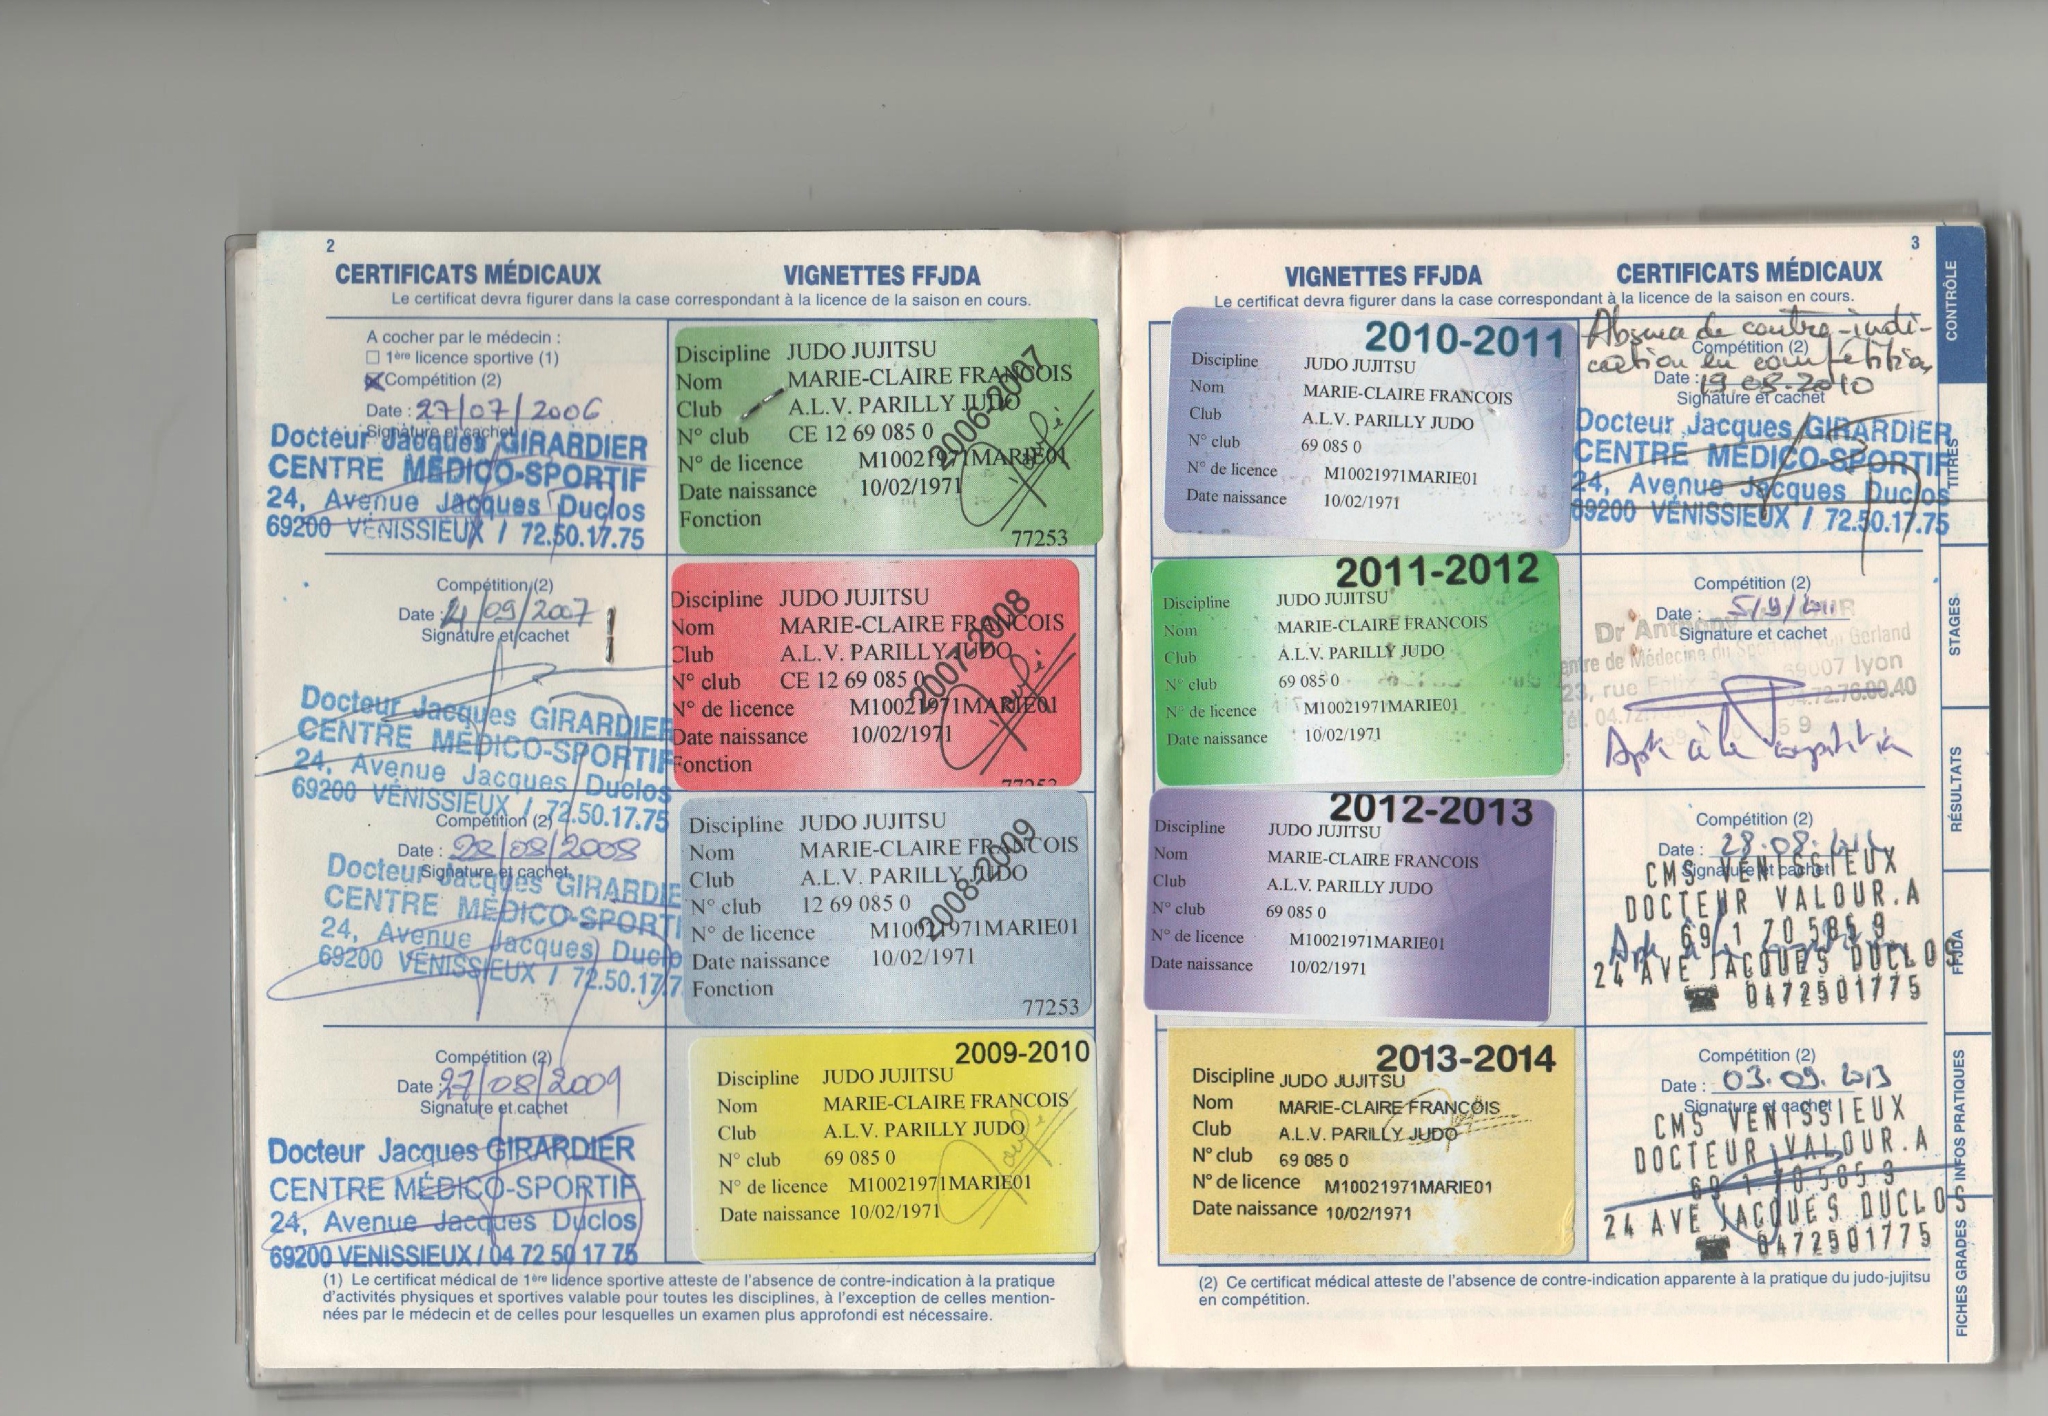 2
CERTIFICATS MÉDICAUX
VIGNETTES FFJDA
Le certificat devra figurer dans la case correspondant à la licence de la saison en cours.
A cocher par le médecin :
1ère licence sportive (1)
Compétition (2)
Date : 27/07/2006
Signature et cachet
Docteur Jacques GIRARDIER
CENTRE MÉDICO-SPORTIF
24, Avenue Jacques Duclos
69200 VÉNISSIEUX / 72.50.17.75
2006-2007
Discipline JUDO JUJITSU
Nom MARIE-CLAIRE FRANCOIS
Club A.L.V. PARILLY JUDO
N° club CE 12 69 085 0
N° de licence M10021971MARIE01
Date naissance 10/02/1971
Fonction
77253
Compétition (2)
Date : 4/09/2007
Signature et cachet
Docteur Jacques GIRARDIER
CENTRE MÉDICO-SPORTIF
24, Avenue Jacques Duclos
69200 VÉNISSIEUX / 72.50.17.75
2007-2008
Discipline JUDO JUJITSU
Nom MARIE-CLAIRE FRANCOIS
Club A.L.V. PARILLY JUDO
N° club CE 12 69 085 0
N° de licence M10021971MARIE01
Date naissance 10/02/1971
Fonction
77253
Compétition (2)
Date : 28/08/2008
Signature et cachet
Docteur Jacques GIRARDIE
CENTRE MÉDICO-SPORTI
24, Avenue Jacques Duclo
69200 VÉNISSIEUX / 72.50.17.7
2008-2009
Discipline JUDO JUJITSU
Nom MARIE-CLAIRE FRANCOIS
Club A.L.V. PARILLY JUDO
N° club 12 69 085 0
N° de licence M10021971MARIE01
Date naissance 10/02/1971
Fonction
77253
Compétition (2)
Date : 27/08/2009
Signature et cachet
Docteur Jacques GIRARDIER
CENTRE MÉDICO-SPORTIF
24, Avenue Jacques Duclos
69200 VENISSIEUX / 04 72 50 17 75
2009-2010
Discipline JUDO JUJITSU
Nom MARIE-CLAIRE FRANCOIS
Club A.L.V. PARILLY JUDO
N° club 69 085 0
N° de licence M10021971MARIE01
Date naissance 10/02/1971
(1) Le certificat médical de 1ère licence sportive atteste de l'absence de contre-indication à la pratique
d'activités physiques et sportives valable pour toutes les disciplines, à l'exception de celles mention-
nées par le médecin et de celles pour lesquelles un examen plus approfondi est nécessaire.
3
VIGNETTES FFJDA
CERTIFICATS MÉDICAUX
Le certificat devra figurer dans la case correspondant à la licence de la saison en cours.
2010-2011
Discipline JUDO JUJITSU
Nom MARIE-CLAIRE FRANCOIS
Club A.L.V. PARILLY JUDO
N° club 69 085 0
N° de licence M10021971MARIE01
Date naissance 10/02/1971
Absence de contre-indi-
cation en compétition
Compétition (2)
Date : 19.08.2010
Signature et cachet
Docteur Jacques GIRARDIER
CENTRE MÉDICO-SPORTIF
24, Avenue Jacques Duclos
69200 VÉNISSIEUX / 72.50.17.75
2011-2012
Discipline JUDO JUJITSU
Nom MARIE-CLAIRE FRANCOIS
Club A.L.V. PARILLY JUDO
N° club 69 085 0
N° de licence M10021971MARIE01
Date naissance 10/02/1971
Compétition (2)
Date : 5/9/2011
Signature et cachet
Dr Anthony
Centre de Médecine du Sport Gerland
69007 lyon
Apte à la compétition
2012-2013
Discipline JUDO JUJITSU
Nom MARIE-CLAIRE FRANCOIS
Club A.L.V. PARILLY JUDO
N° club 69 085 0
N° de licence M10021971MARIE01
Date naissance 10/02/1971
Compétition (2)
Date : 28.08.2012
Signature et cachet
CMS VENISSIEUX
DOCTEUR VALOUR.A
69 1 70 585 9
24 AVE JACQUES DUCLOS
☎ 0472501775
2013-2014
Discipline JUDO JUJITSU
Nom MARIE-CLAIRE FRANCOIS
Club A.L.V. PARILLY JUDO
N° club 69 085 0
N° de licence M10021971MARIE01
Date naissance 10/02/1971
Compétition (2)
Date : 03.09.2013
Signature et cachet
CMS VENISSIEUX
DOCTEUR VALOUR.A
69 1 70 585 9
24 AVE JACQUES DUCLOS
☎ 0472501775
(2) Ce certificat médical atteste de l'absence de contre-indication apparente à la pratique du judo-jujitsu
en compétition.
CONTRÔLE
TITRES
STAGES
RÉSULTATS
FFJDA
INFOS PRATIQUES
FICHES GRADES